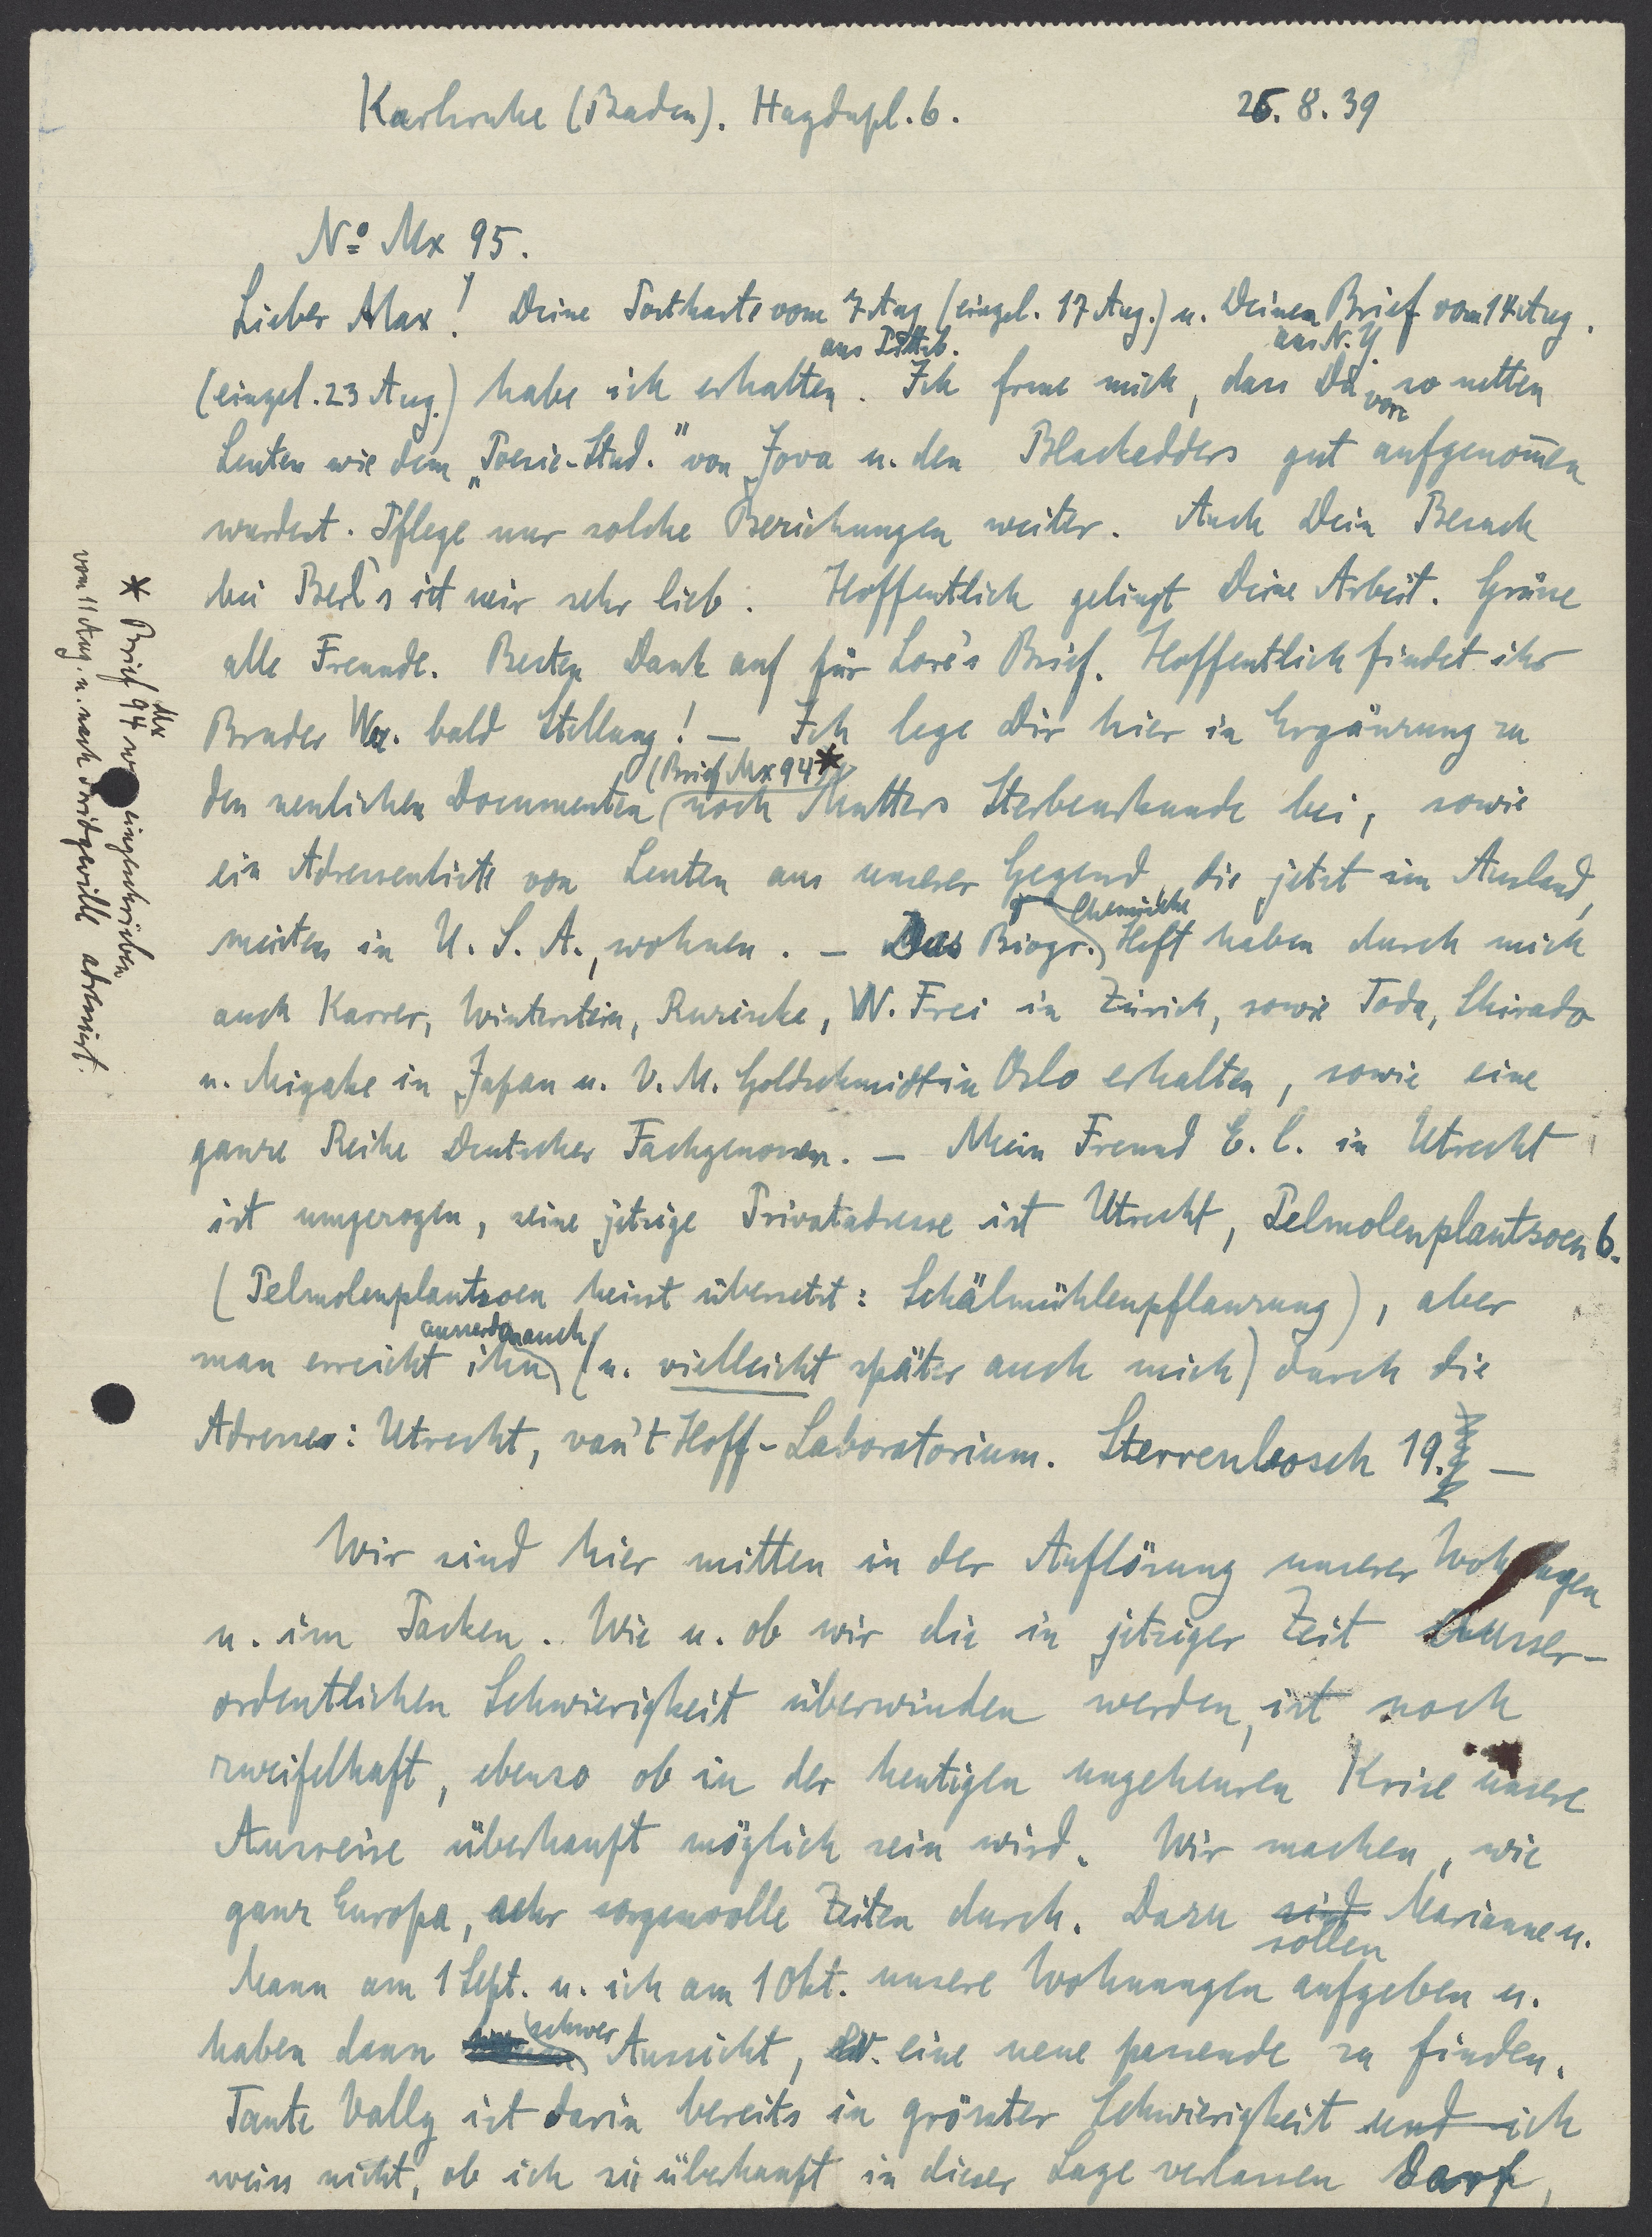 Karlsruhe (Baden). Haydnpl. 6. 26. 8. 39
No Mx 95.
Lieber Max! Deine Postkarte vom 7 Aug (eingel. 17 Aug.) u. Deinen Brief vom 14 Aug.
aus Pittsb. aus N.Y.
(eingel. 23 Aug.) habe ich erhalten. Ich freue mich, dass Du von so netten
Leuten wie dem „Poesie-Stud." von Jova u. den Blackadders gut aufgenom̄en
wurdest. Pflege nur solche Beziehungen weiter. Auch Dein Besuch
bei Berl's ist mir sehr lieb. Hoffentlich gelingt Deine Arbeit. Grüsse
alle Freunde. Besten Dank auf für Lore's Brief. Hoffentlich findet ihr
Bruder bald Stellung! — Ich lege Dir hier in Ergänzung zu
(Brief Mx 94*)
den neulichen Documenten noch Mutters Sterbeurkunde bei, sowie
ein Adressenliste von Leuten aus unserer Gegend, die jetzt im Ausland,
meistens in U. S. A., wohnen. — Das Biogr. Chemische Heft haben durch mich
auch Karrer, Winterstein, Ruzicka, W. Frei in Zürich, sowie Toda, Shirado
u. Miyake in Japan u. V. M. Goldschmidt in Oslo erhalten, sowie eine
ganze Reihe Deutscher Fachgenossen. — Mein Freund E. C. in Utrecht
ist umgezogen, seine jetzige Privatadresse ist Utrecht, Pelmolenplantsoen 6.
(Pelmolenplantsoen heisst übersetzt: Schälmühlenpflanzung), aber
ausserdem auch
man erreicht ihn (u. vielleicht später auch mich) durch die
Adresse: Utrecht, van't Hoff-Laboratorium. Sterrenbosch 19. —
Wir sind hier mitten in der Auflösung unserer Wohnungen
u. im Packen. Wie u. ob wir die in jetziger Zeit ausser-
ordentlichen Schwierigkeit überwinden werden, ist noch
zweifelhaft, ebenso ob in der heutigen ungeheuren Krise unsere
Ausreise überhaupt möglich sein wird. Wir machen, wie
ganz Europa, sehr sorgenvolle Zeiten durch. Dazu sind Marianne u.
sollen
Mann am 1 Sept. u. ich am 1 Okt. unsere Wohnungen aufgeben u.
haben dann schwer Aussicht, eine neue passende zu finden.
Tante Vally ist darin bereits in grösster Schwierigkeit und ich
weiss nicht, ob ich sie überhaupt in dieser Lage verlassen darf,
* Brief Mx 94 eingeschrieben
vom 11 Aug. u. nach adressiert.